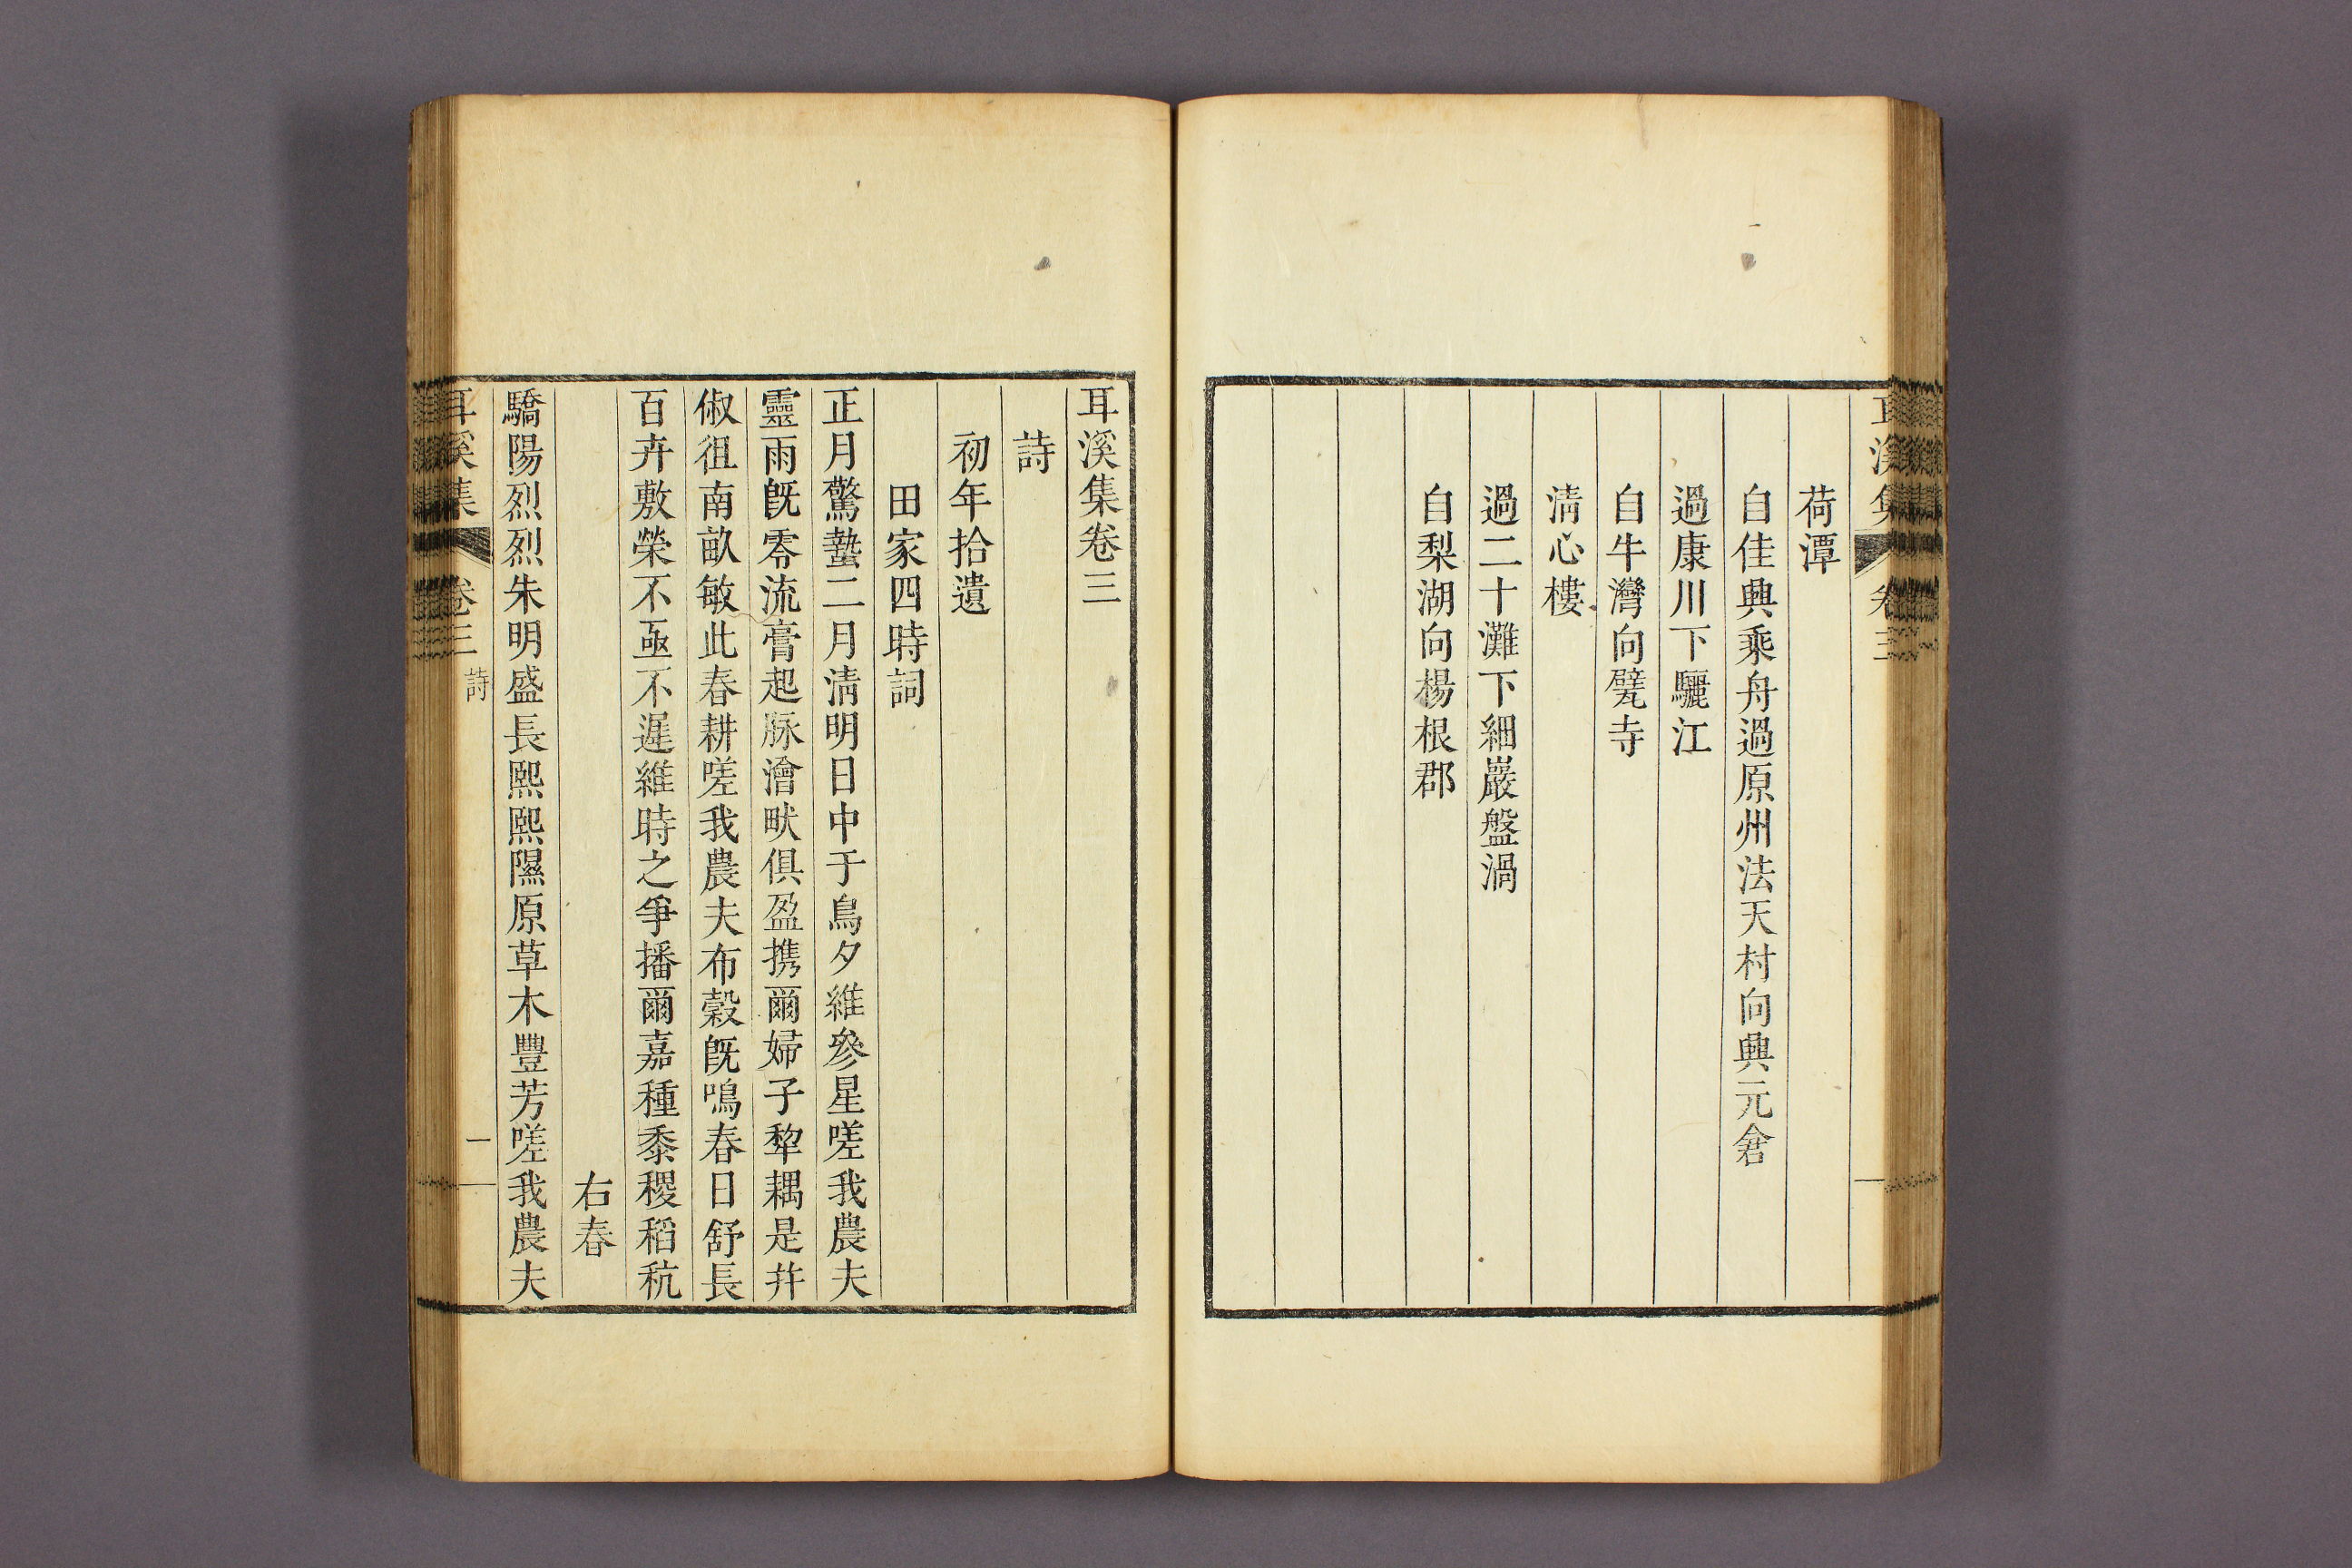 耳溪集 卷三
荷潭
自佳興乘舟過原州法天村向興元倉
過康川下驪江
自牛灣向甓寺
淸心樓
過二十灘下細巖盤渦
自梨湖向楊根郡
耳溪集卷三
詩
初年拾遺
田家四時詞
正月驚蟄二月淸明日中于鳥夕維參星嗟我農夫
靈雨旣零流膏起脉澮畎俱盈携爾婦子犂耦是幷
俶徂南畝敏此春耕嗟我農夫布穀旣鳴春日舒長
百卉敷榮不亟不遲維時之爭播爾嘉種黍稷稻秔
右春
驕陽烈烈朱明盛長熙熙隰原草木豐芳嗟我農夫
耳溪集 卷三 詩 一